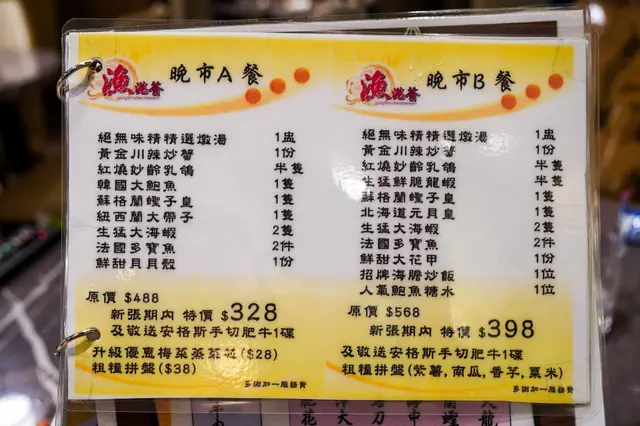 漁港餐
晚市A餐
絕無味精精選燉湯 1盅
黃金川辣炒蟹 1份
紅燒妙齡乳鴿 半隻
韓國大鮑魚 1隻
蘇格蘭蟶子皇 1隻
紐西蘭大帶子 1隻
生猛大海蝦 2隻
法國多寶魚 2件
鮮甜貝貝殼 1份
原價 $488
新張期內 特價 $328
及敬送安格斯手切肥牛1碟
升級優惠梅菜蒸菜芯($28)
粗糧拼盤($38)
多謝加一服務費
漁港餐
晚市B餐
絕無味精精選燉湯 1盅
黃金川辣炒蟹 1份
紅燒妙齡乳鴿 半隻
生猛鮮脆龍蝦 1隻
蘇格蘭蟶子皇 1隻
北海道元貝皇 1隻
生猛大海蝦 2隻
法國多寶魚 2件
鮮甜大花甲 1份
招牌海膽炒飯 1位
人氣鮑魚糖水 1位
原價 $568
新張期內 特價 $398
及敬送安格斯手切肥牛1碟
粗糧拼盤(紫薯,南瓜,香芋,粟米)
多謝加一服務費